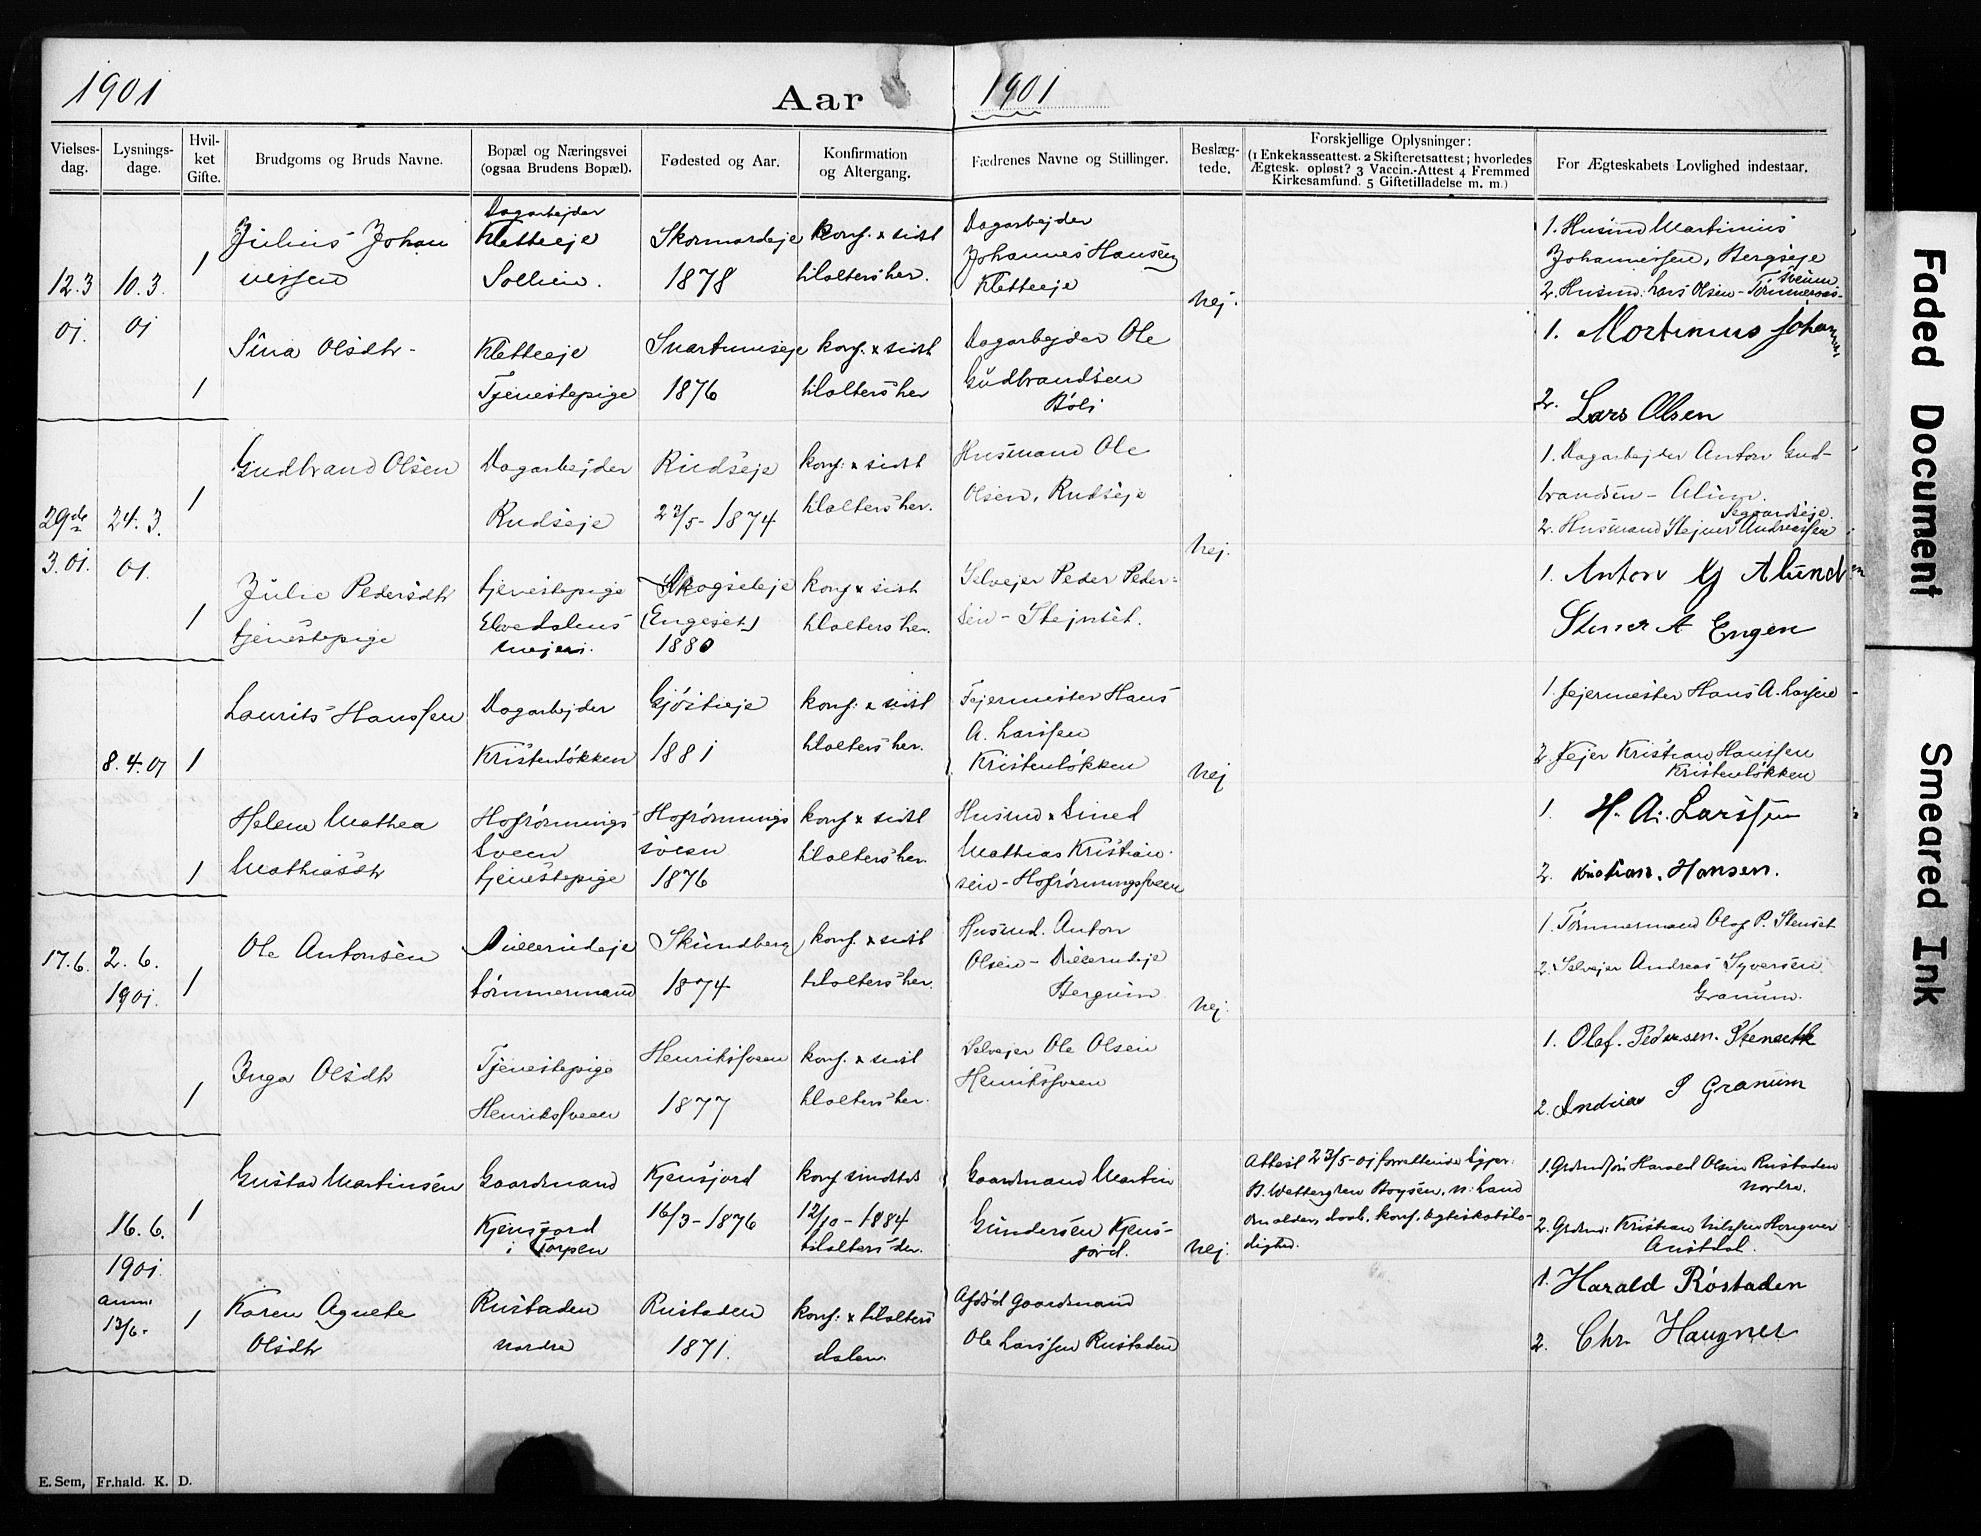 1901
Aar
1901
Vielses-
dag.
Lysnings-
dage.
Hvil-
ket
Gifte.
Brudgoms og Bruds Navne.
Bopæl og Næringsvei
(ogsaa Brudens Bopæl).
Fødested og Aar.
Konfirmation
og Altergang.
Fædrenes Navne og Stillinger.
Beslæg-
tede.
Forskjellige Oplysninger:
(1 Enkekasseattest. 2 Skifteretsattest; hvorledes
Ægtesk. opløst? 3 Vaccin.-Attest 4 Fremmed
Kirkesamfund. 5 Giftetilladelse m. m.)
For Ægteskabets Lovlighed indestaar.
12.3
01.
10.3.
01
1
Julius Johan
nessen
Dagarbejder
Kletteeje
Sollien.
1878
konf. & sidst
tilalters her.
Dagarbejder
Johannes Hansen
Kletteeje
nej.
1. Husmd Martinius
Johannessen, Bergseje
2. Husmd. Lars Olsen
1
Sina Olsdtr
Kletteeje
Tjenestepige
Svartumseje
1876
konf. & sidst
tilalters her
Dagarbejder Ole
Gudbrandsen
1. Martinius
2. Lars Olsen
29de
3.01.
24.3.
01.
1
Gudbrand Olsen
Dagarbejder
Rudseje
Rudseje
23/5 - 1874
konf. & sidst
tilalters her.
Husmand Ole
Olsen, Rudseje
nej.
1. Dagarbejder Anton Gud-
brandsen - Alun
2. Husmand Stejner Andreassen
1
Julie Pedersdtr
tjenestepige
tjenestepige
Elvedalens
mejeri.
Skogseteje
(Engeset)
1880
konf & sidst
tilalters her.
Selvejer Peder Peder-
sen - Stejnset.
1. Anton G Alund
Stener A Engen
8.4.01
1
Laurits Hanssen
Dagarbejder
Kristenløkken
Gjøstieje
1881
konf. & sidst
tilalters her.
Fejermester Hans
A. Larssen
Kristenløkken
nej
1. fejermester Hans A. Larssen
2. fejer Kristian Hanssen
Kristenløkken
1
Helene Mathea
Mathiasdtr
Hofrønnings
sveen
tjenestepige
Hofrønnings
sveen
1876
konf & sidst
tilalters her.
Husmd & Smed
Mathias Kristian-
sen - Hofrønningsveen
1. H. A. Larssen
2. Kristian. Hansen.
17.6.
2.6.
1901.
1
Ole Antonsen
tømmermand
Skundberg
1874
konf. & sidst
tilalters her.
Husmd. Anton
Bergum
nej.
1. Tømmermand Olaf P. Stenset
2. Selvejer Andreas Syversen
Granum.
1
Inga Olsdtr
Tjenestepige
Henriksveen
Henriksveen
1877
konf. & sidst
tilalters her.
Selvejer Ole Olsen
Henriksveen
1. Olaf. Pedersen. Stenseth
2. Andreas S Granum
16.6.
1901.
1
Gustav Martinsen
Gaardmand
Kjensjord
i Torpen
Kjensjord
16/3 - 1876
12/10 - 1884
tilalters der.
Gaardmand Martin
Gundersen Kjens-
jord.
nej.
Attest 23/5-01
om alder, daab, konf.
dighed.
1. Harald Olsen Rustaden
nordre.
2. Kristian Nilssen Haugner
Austdal.
13/6.
1
Karen Agnete
Olsdtr
Rustaden
nordre
Rustaden
1871.
konf. & tilalters
Dalen.
Afdød Gaardmand
Ole Larssen Rustaden
1. Harald Røstaden
2. Chr. Haugner
E. Sem, Fr.hald. K. D.
Faded Document
Smeared Ink